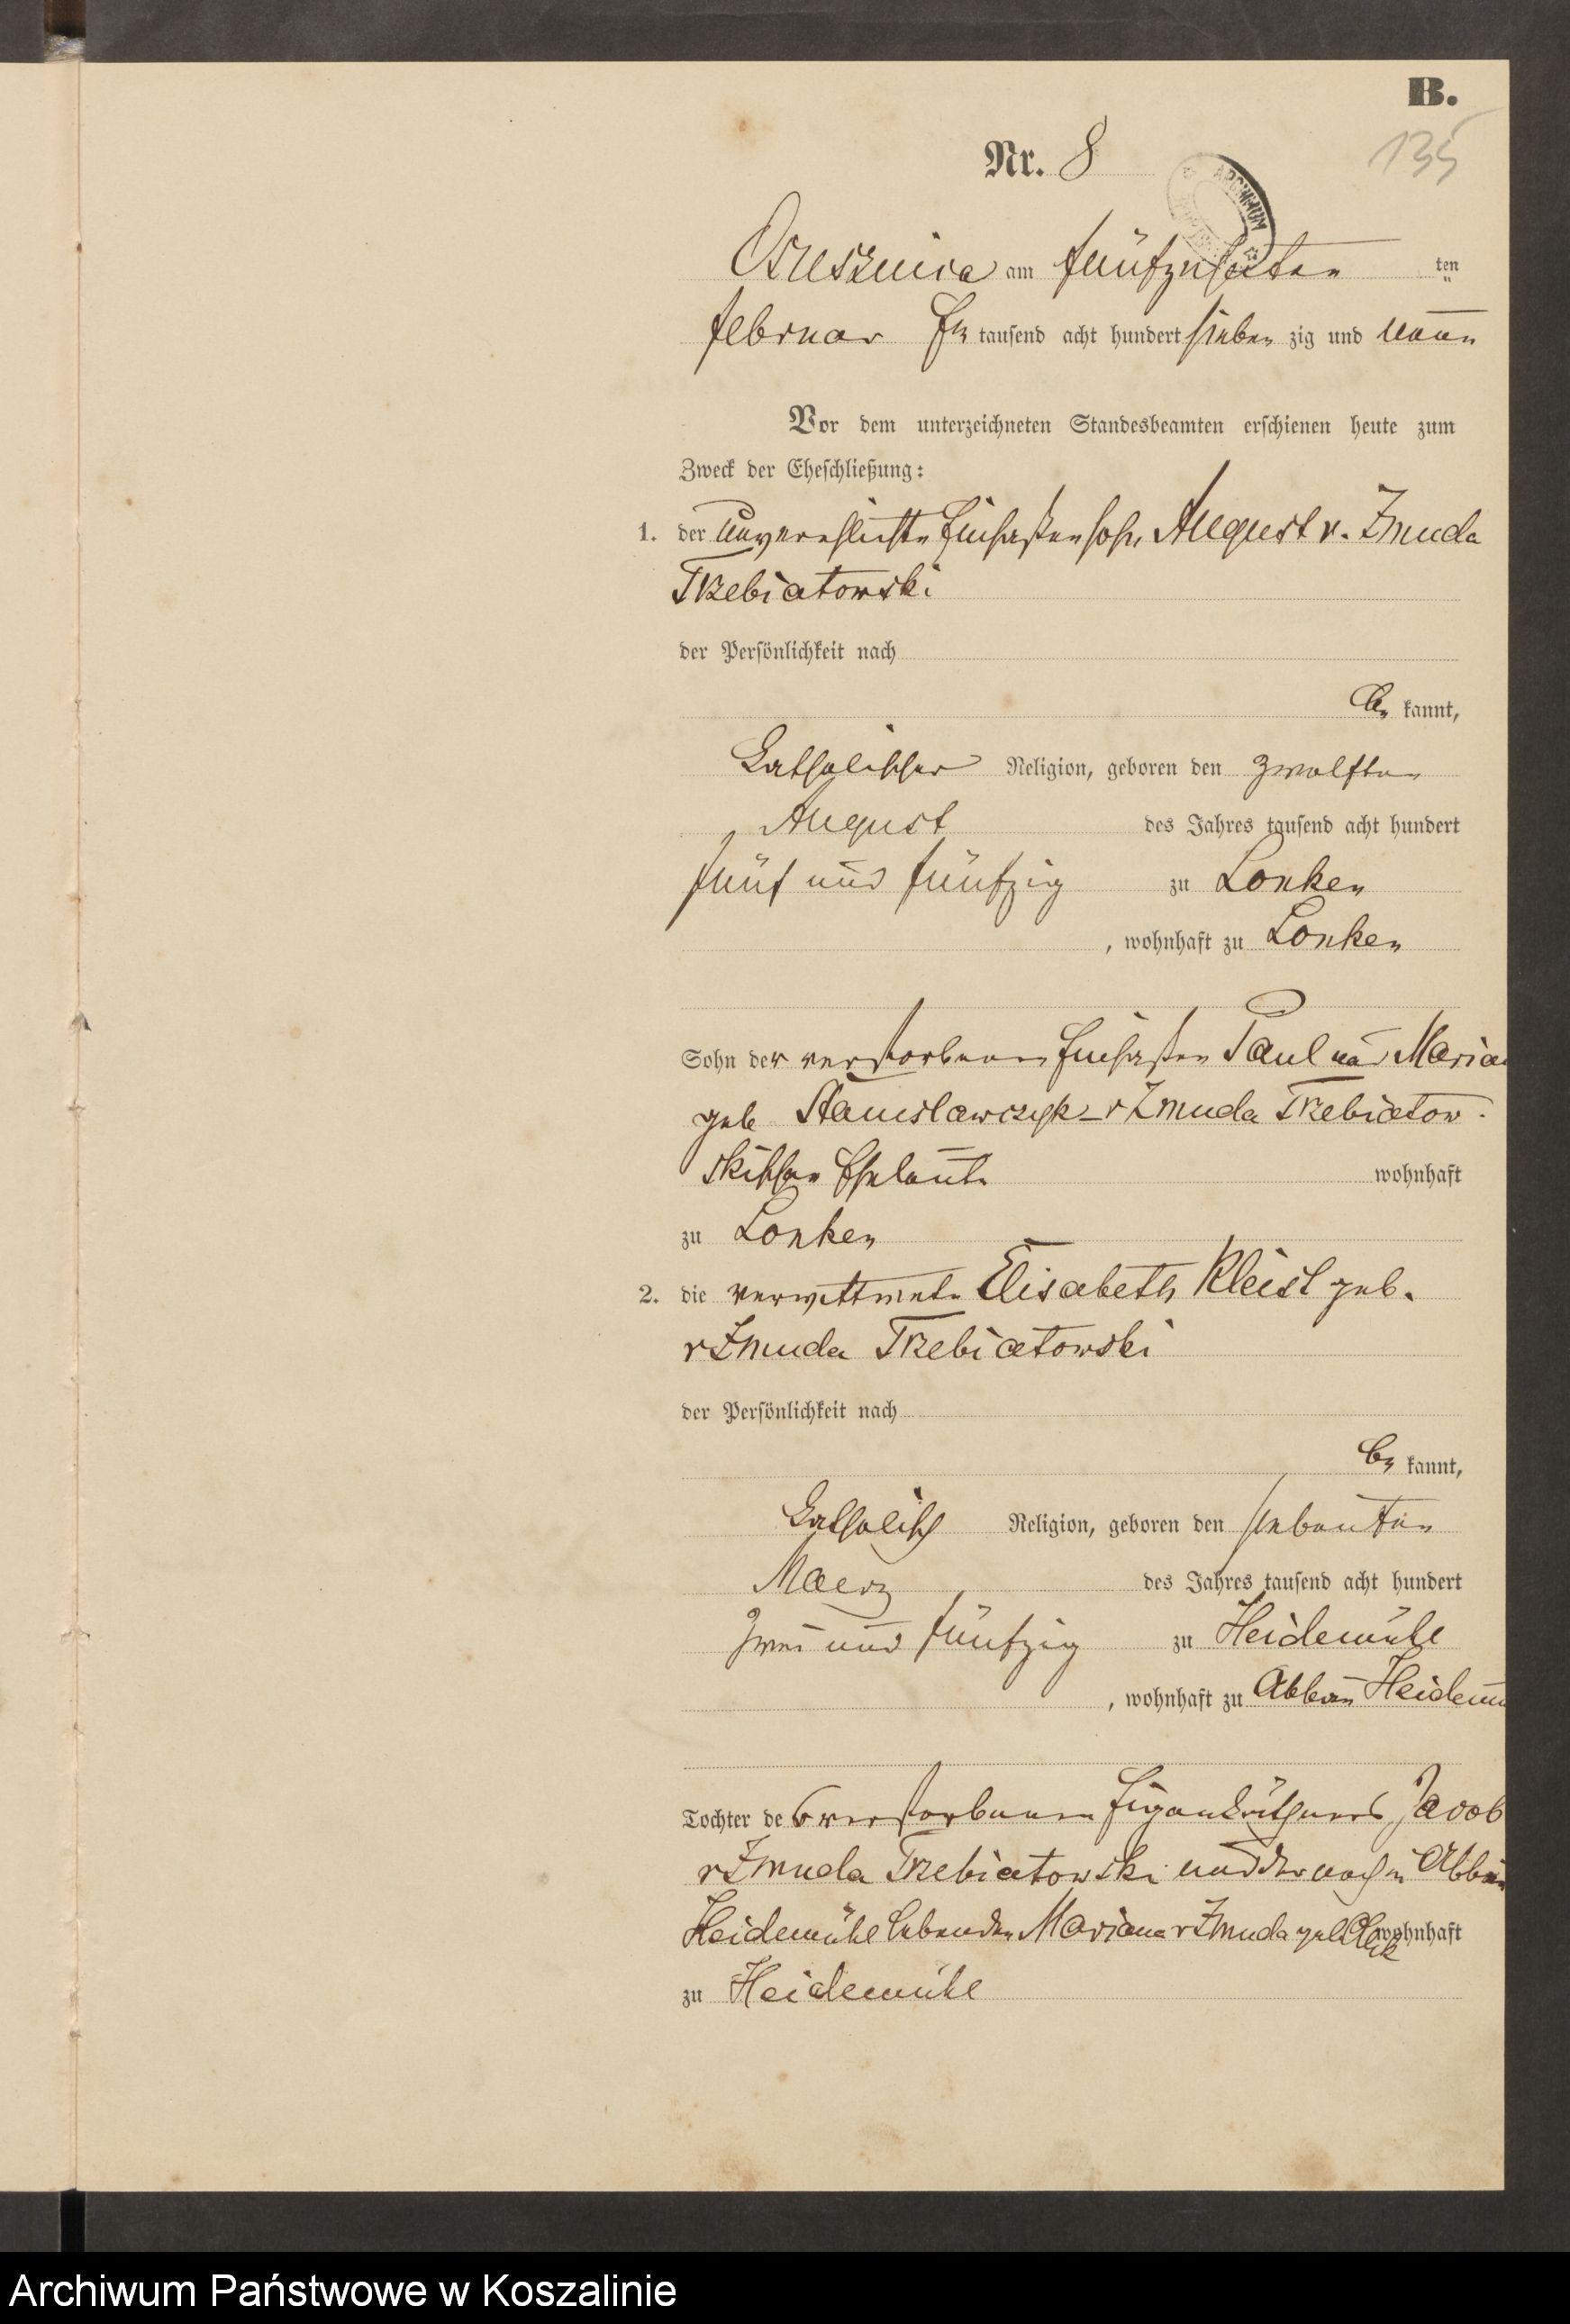 B.
135
Nr. 8
ARCHIWUM
Osusznica am fünfzehnten ten
februar Ein tausend acht hundert sieben zig und neun
Vor dem unterzeichneten Standesbeamten erschienen heute zum
Zweck der Eheschließung:
1. der unverehlichte Einsaßensohn August v. Zmuda
Trzebiatowski
der Persönlichkeit nach
be kannt,
katholischer Religion, geboren den zwolften
August des Jahres tausend acht hundert
fünf und fünfzig zu Lonken
, wohnhaft zu Lonken
Sohn der verstorbenen Einsaßen Paul und Marian
geb Stanislawczyk - v Zmuda Trzebiatow-
skischen Eheleute wohnhaft
zu Lonken
2. die verwittwete Elisabeth Kleist geb.
v Zmuda Trzebiatowski
der Persönlichkeit nach
be kannt,
katholisch Religion, geboren den siebenten
Maerz des Jahres tausend acht hundert
zwei und fünfzig zu Heidemühl
, wohnhaft zu Abbau Heidemü
Tochter des verstorbenen Eigenkäthners Jacob
v Zmuda Trzebiatowski und der noch in Abbau
Heidemühl lebenden Mariana v Zmuda geb wohnhaft
zu Heidemühl
Archiwum Państwowe w Koszalinie